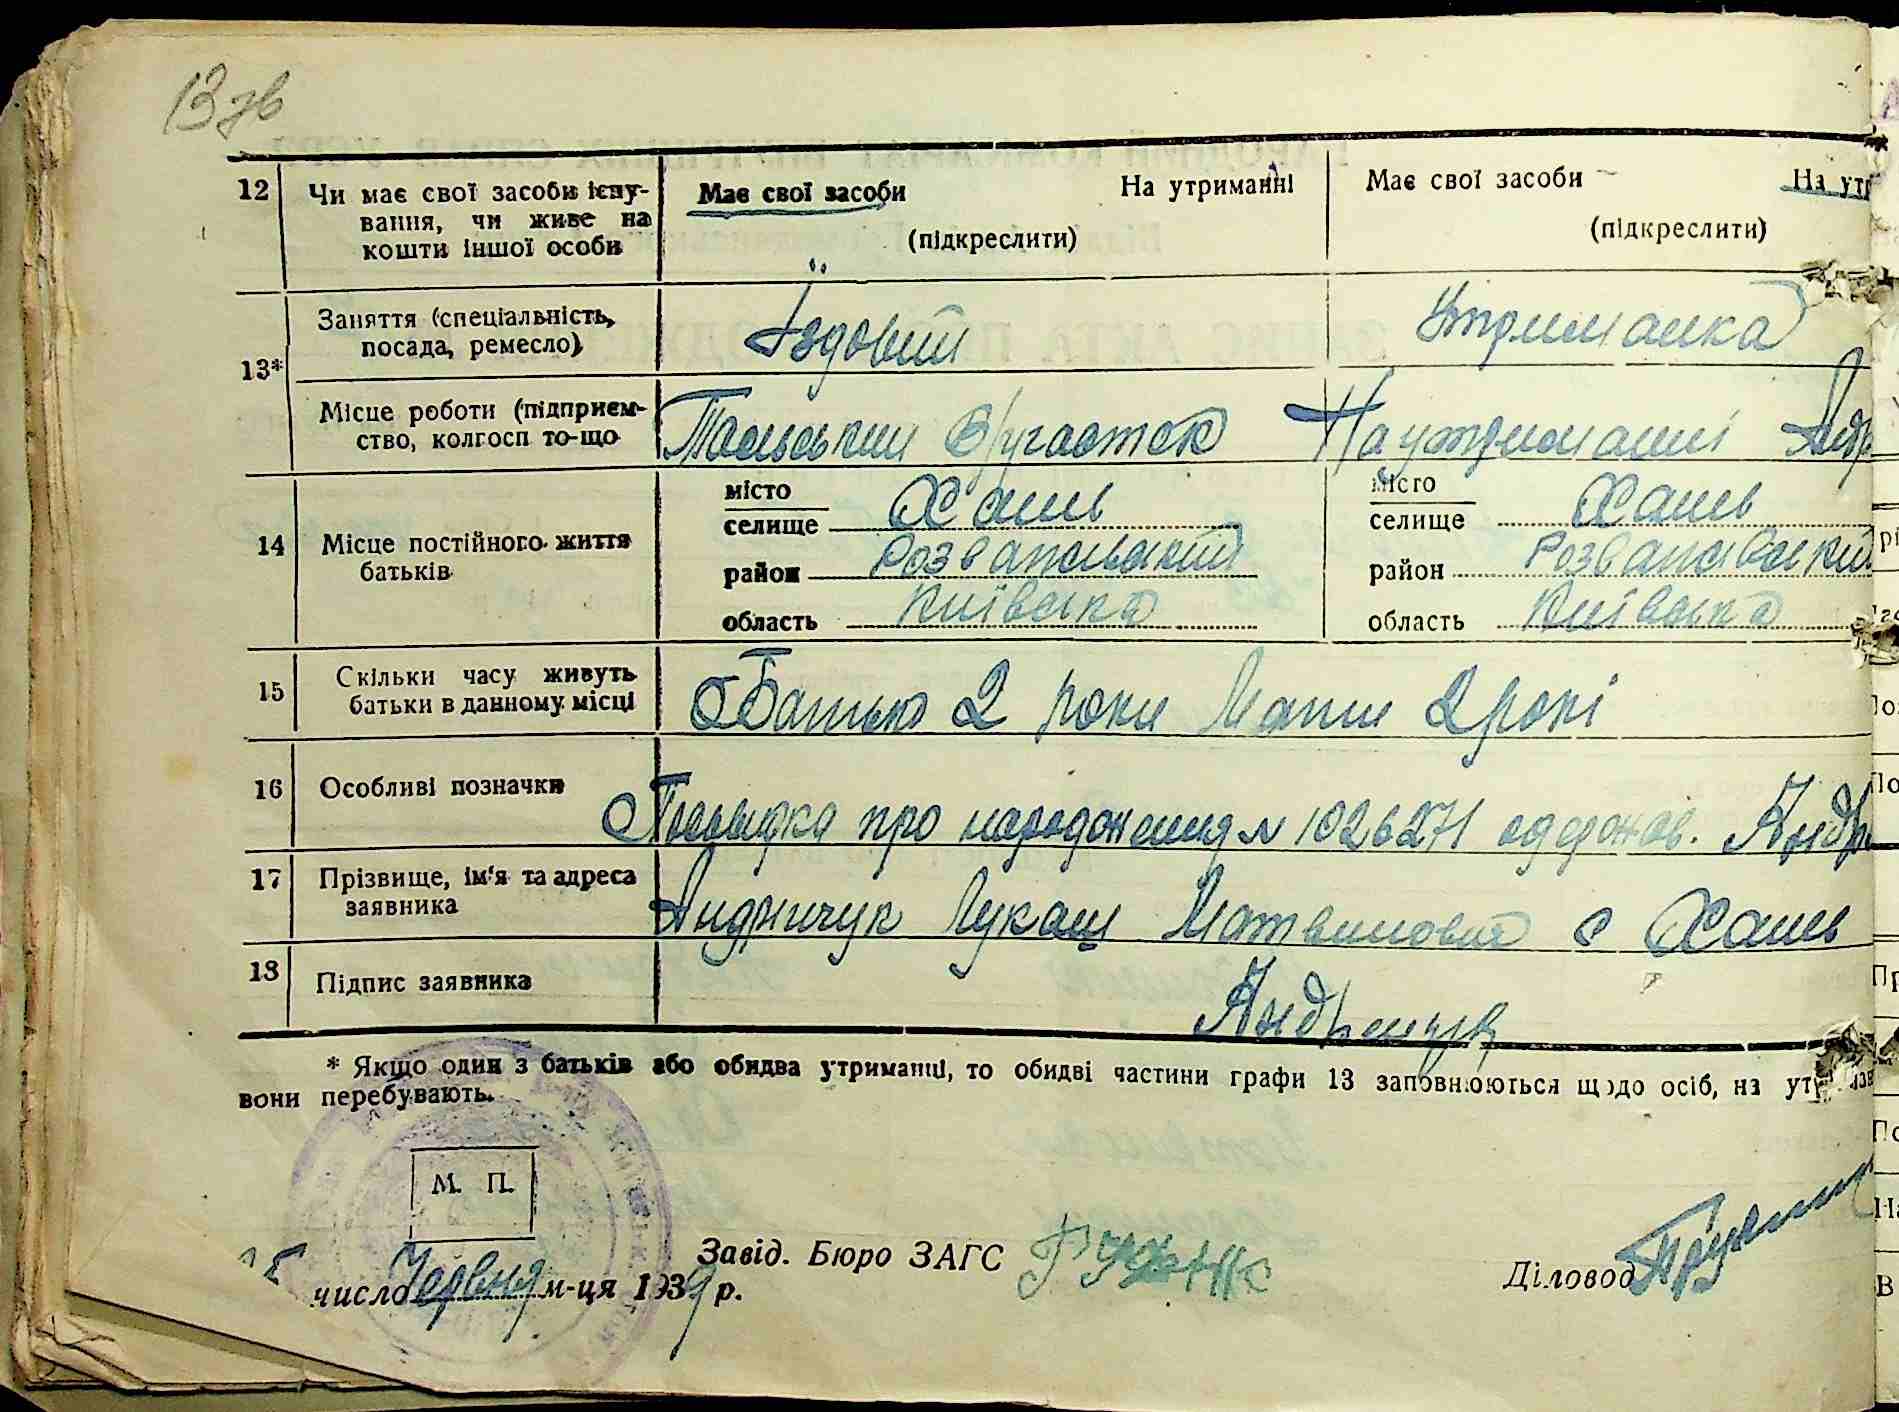 13 зв
12 Чи має свої засоби існу-
вання, чи живе на
кошти іншої особи
Має свої засоби На утриманні
(підкреслити)
Має свої засоби На утр
(підкреслити)
13* Заняття (спеціальність,
посада, ремесло)
Їздовий
Утриманка
Місце роботи (підприєм-
ство, колгосп то-що
На утриманні Андр
14 Місце постійного життя
батьків
місто
селище Хани
район Розважівський
область Київська
місто
селище Хани
район Розважівський
область Київська
15 Скільки часу живуть
батьки в данному місці
Батько 2 роки Мати 2 рокі
16 Особливі позначки
про народження № 1026271 одержав. Андр
17 Прізвище, ім'я та адреса
заявника
Андрийчук Лукаш с Хани
13 Підпис заявника
* Якщо один з батьків або обидва утриманці, то обидві частини графи 13 заповнюються щодо осіб, на утр
вони перебувають.
М. П.
число Червня м-ця 1939 р.
Завід. Бюро ЗАГС
Діловод